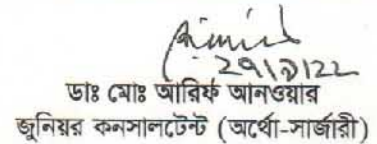 29/9/22
ডাঃ মোঃ আরিফ আনওয়ার
জুনিয়র কনসালটেন্ট (অর্থো-সার্জারী)